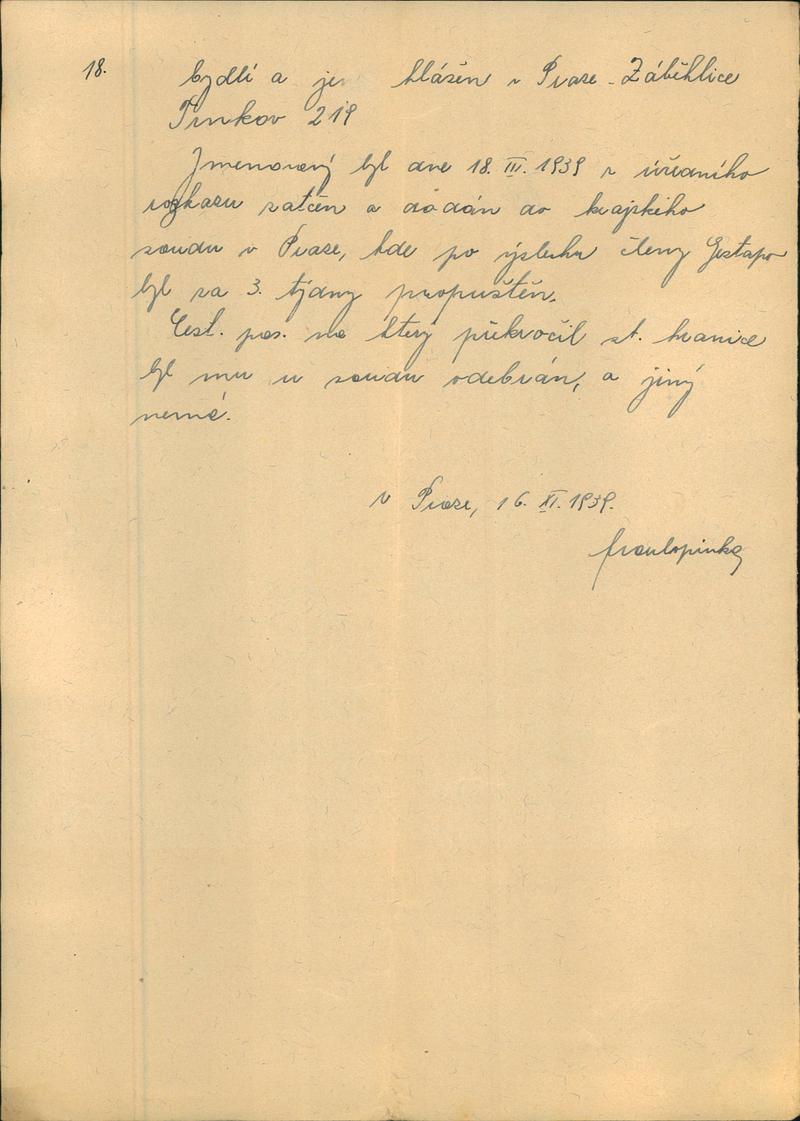 18. bydlí a je hlášen v Praze - Záběhlice
Trnkov 219
Jmenovaný byl dne 18. III. 1939 z úředního
rozkazu zatčen a dodán do krajského
soudu v Praze, kde po výslechu členy Gestapa
byl za 3. týdny propuštěn.
Cest. pas. na který překročil st. hranice
byl mu u soudu odebrán, a jiný
nemá.
v Praze, 16. XI. 1939.